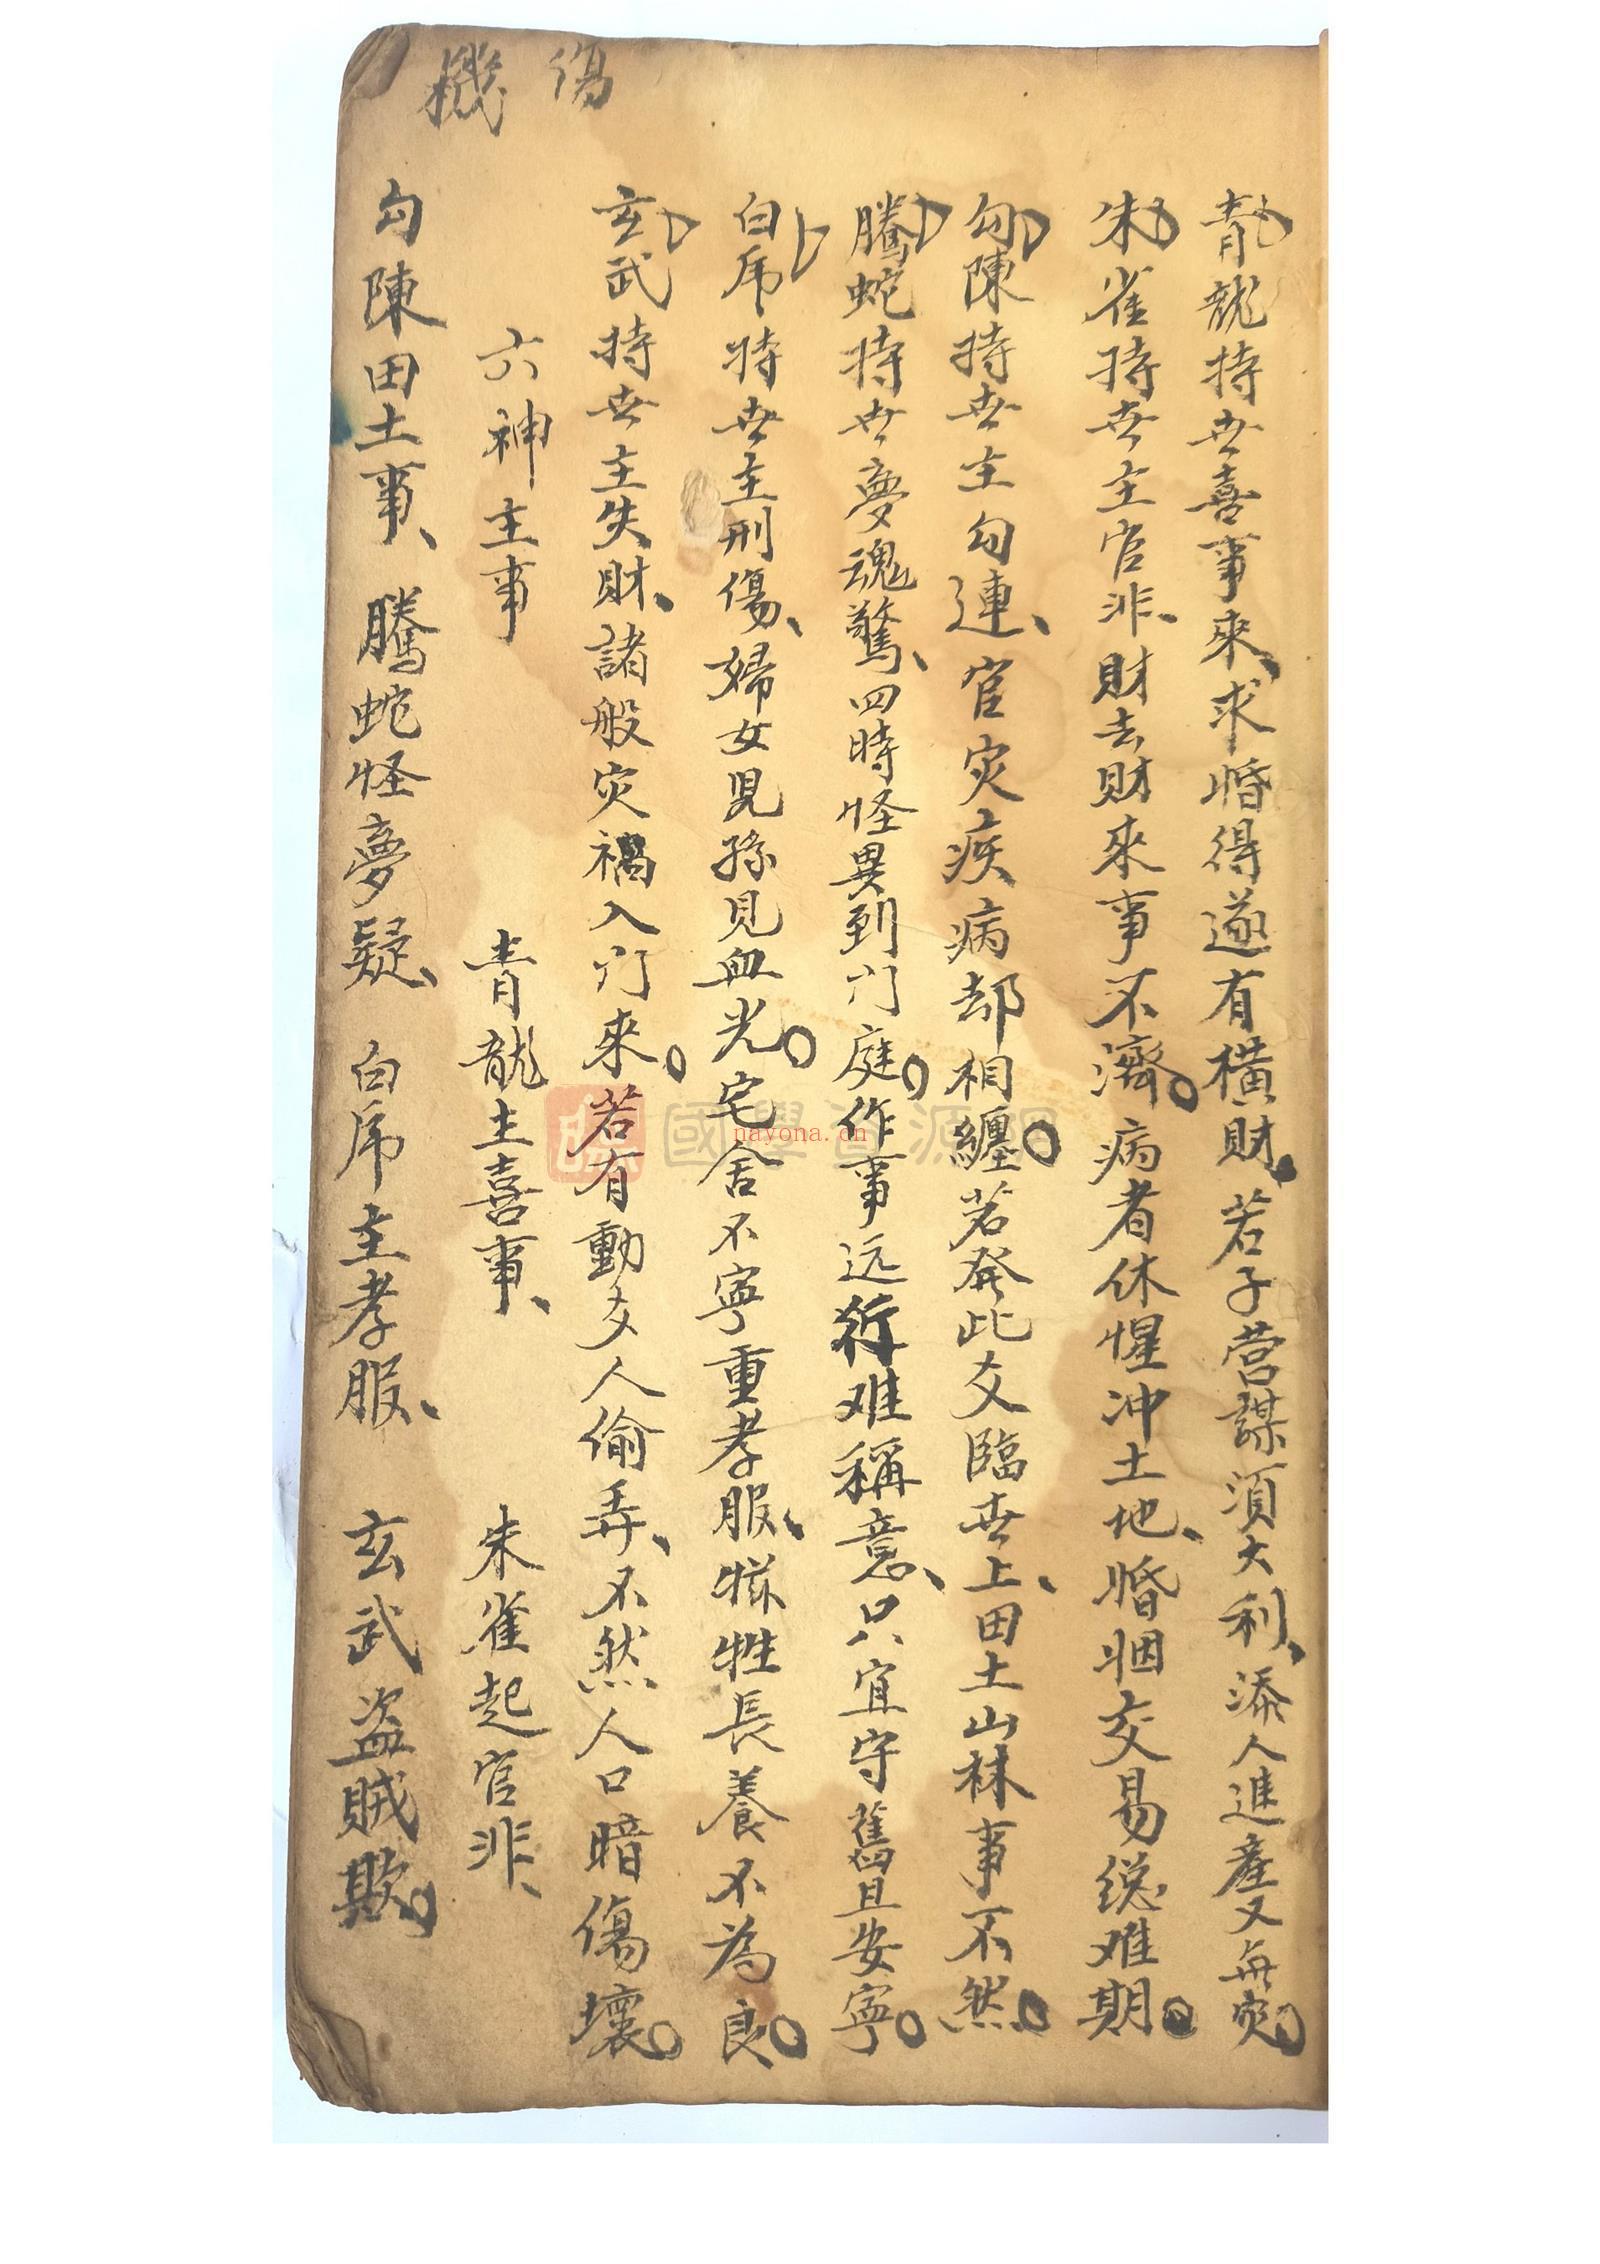 傷
機
青龍持世喜事來、求婚得遂有橫財。若子营謀須大利、添人進產又無灾。
朱雀持世主官非、財去財來事不濟。病者休惺冲土地、婚姻交易総难期。
勾陳持世主勾連、官灾疾病却相纏。若発此爻臨世上、田土山林事不然。
騰蛇持世夢魂驚、四時怪異到门庭。作事远行难稱意、只宜守舊且安寧。
白虎持世主刑傷、婦女児孫見血光。宅舍不寧重孝服、犠牲長養不為良。
玄武持世主失財、諸般灾禍入门來。若有動爻人偷弄、不然人口暗傷壞。
六神主事 青龍主喜事、 朱雀起官非、
勾陳田土事、騰蛇怪夢疑、白虎主孝服、玄武盗贼欺。
國學資源網
nayona.cn